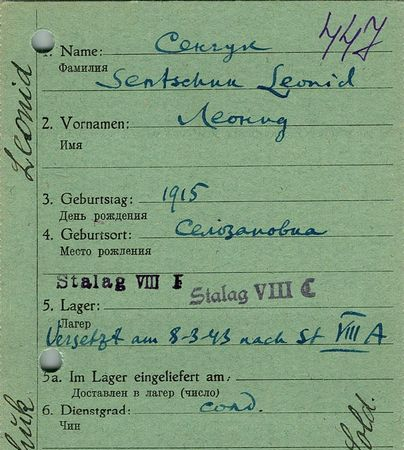 447
1. Name: Сенчук
Фамилия
Sentschuk Leonid
2. Vornamen: Леонид
Имя
3. Geburtstag: 1915
День рождения
4. Geburtsort:
Место рождения
Stalag VIII F Stalag VIII C
5. Lager:
Лагер
Versetzt am 8-3-43 nach St VIII A
5a. Im Lager eingeliefert am:
Доставлен в лагер (число)
6. Dienstgrad: солд.
Чин
Leonid
Sold.